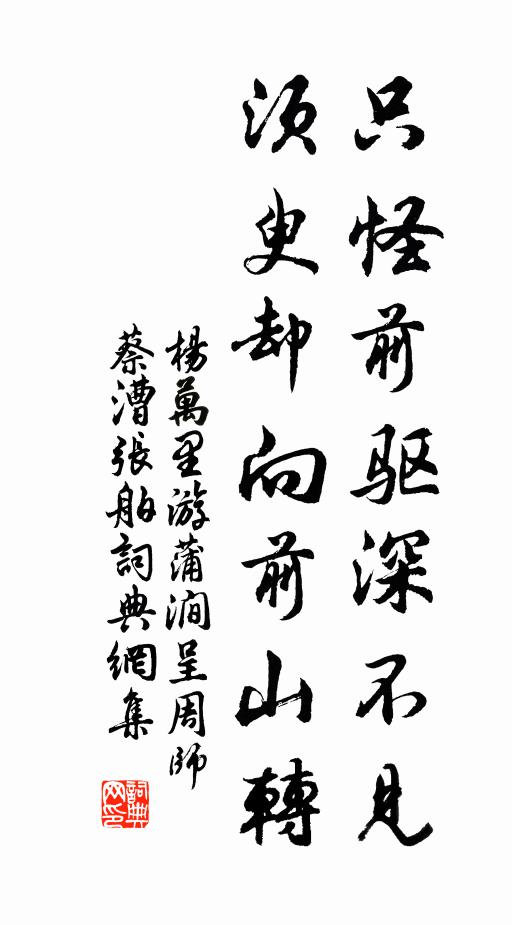 只怪前驱深不見
須叟却向前山轉
楊萬里游蒲澗呈周師
蔡漕張舶詞典網集
詞典网印